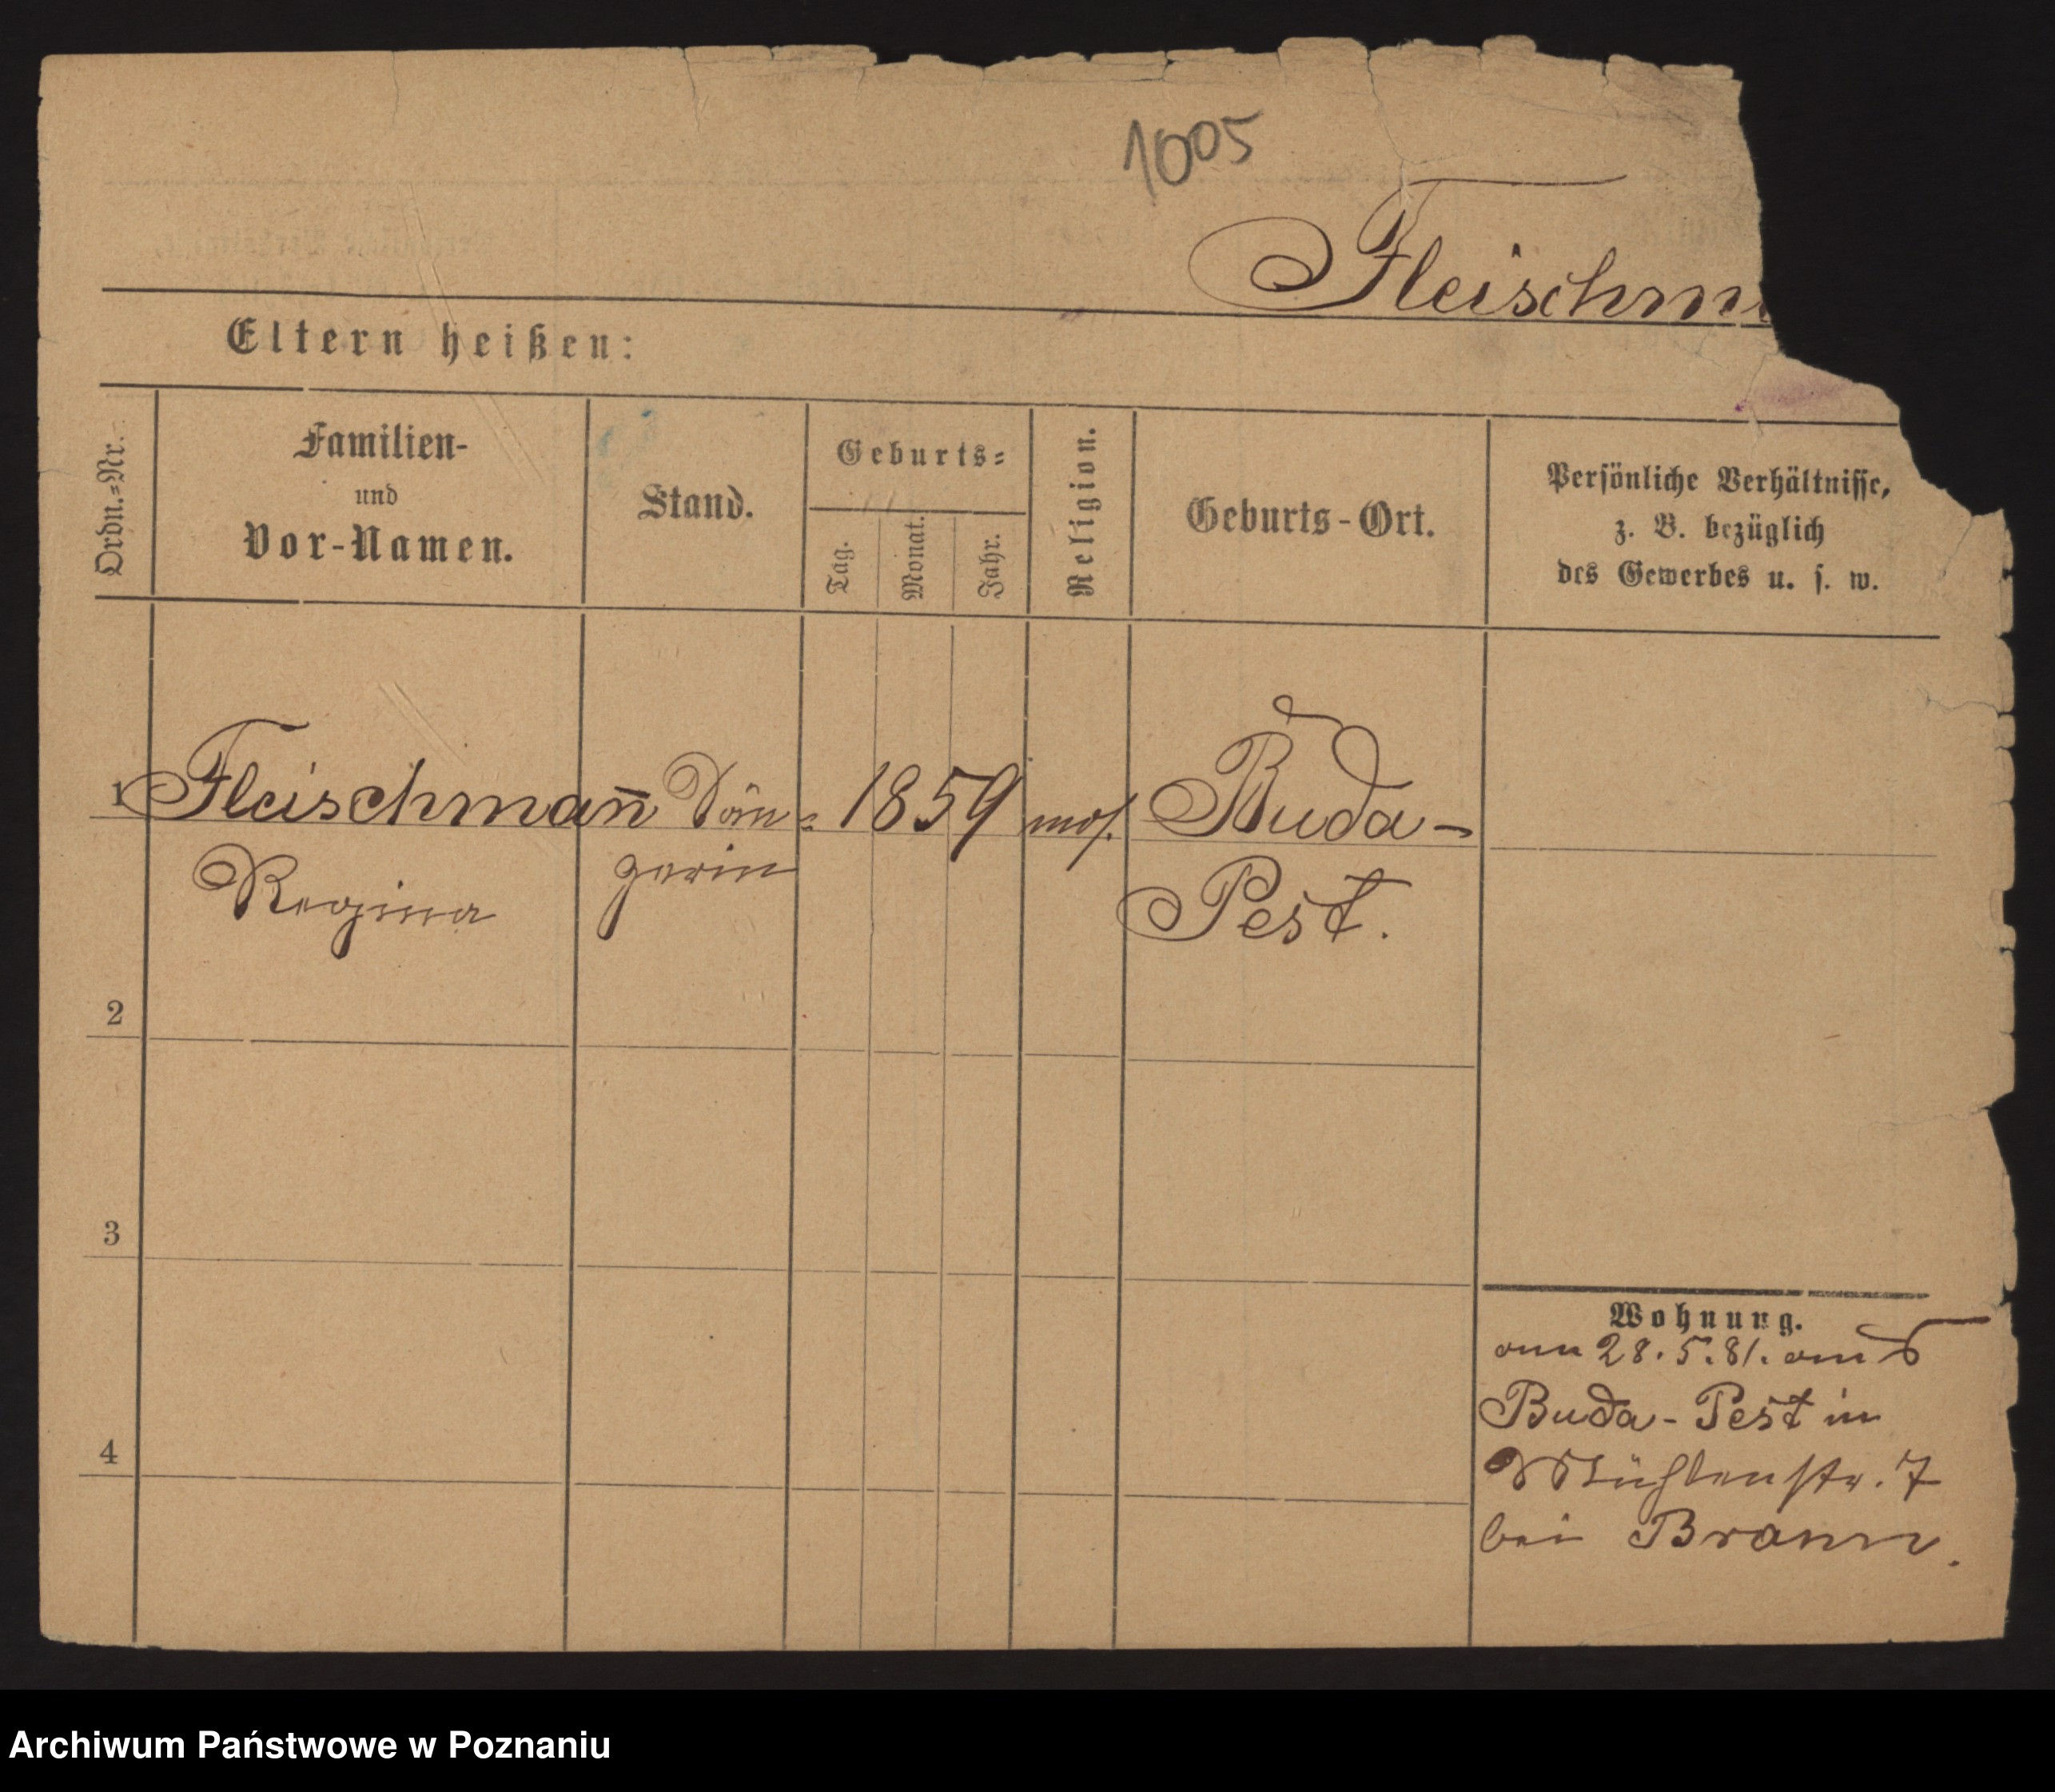 1005
Fleischm
Eltern heißen:
Ordn.=Nr.
Familien-
und
Vor-Namen.
Stand.
Geburts=
Tag.
Monat.
Jahr.
Religion.
Geburts-Ort.
Persönliche Verhältnisse,
z. B. bezüglich
des Gewerbes u. s. w.
1 Fleischman̄ Sän= 1859 mos. Buda-
Regina gerin Pest.
2
3
4
Wohnung.
28.5.81.
Buda-Pest in
Mühlenstr. 7
bei Bramn.
Archiwum Państwowe w Poznaniu